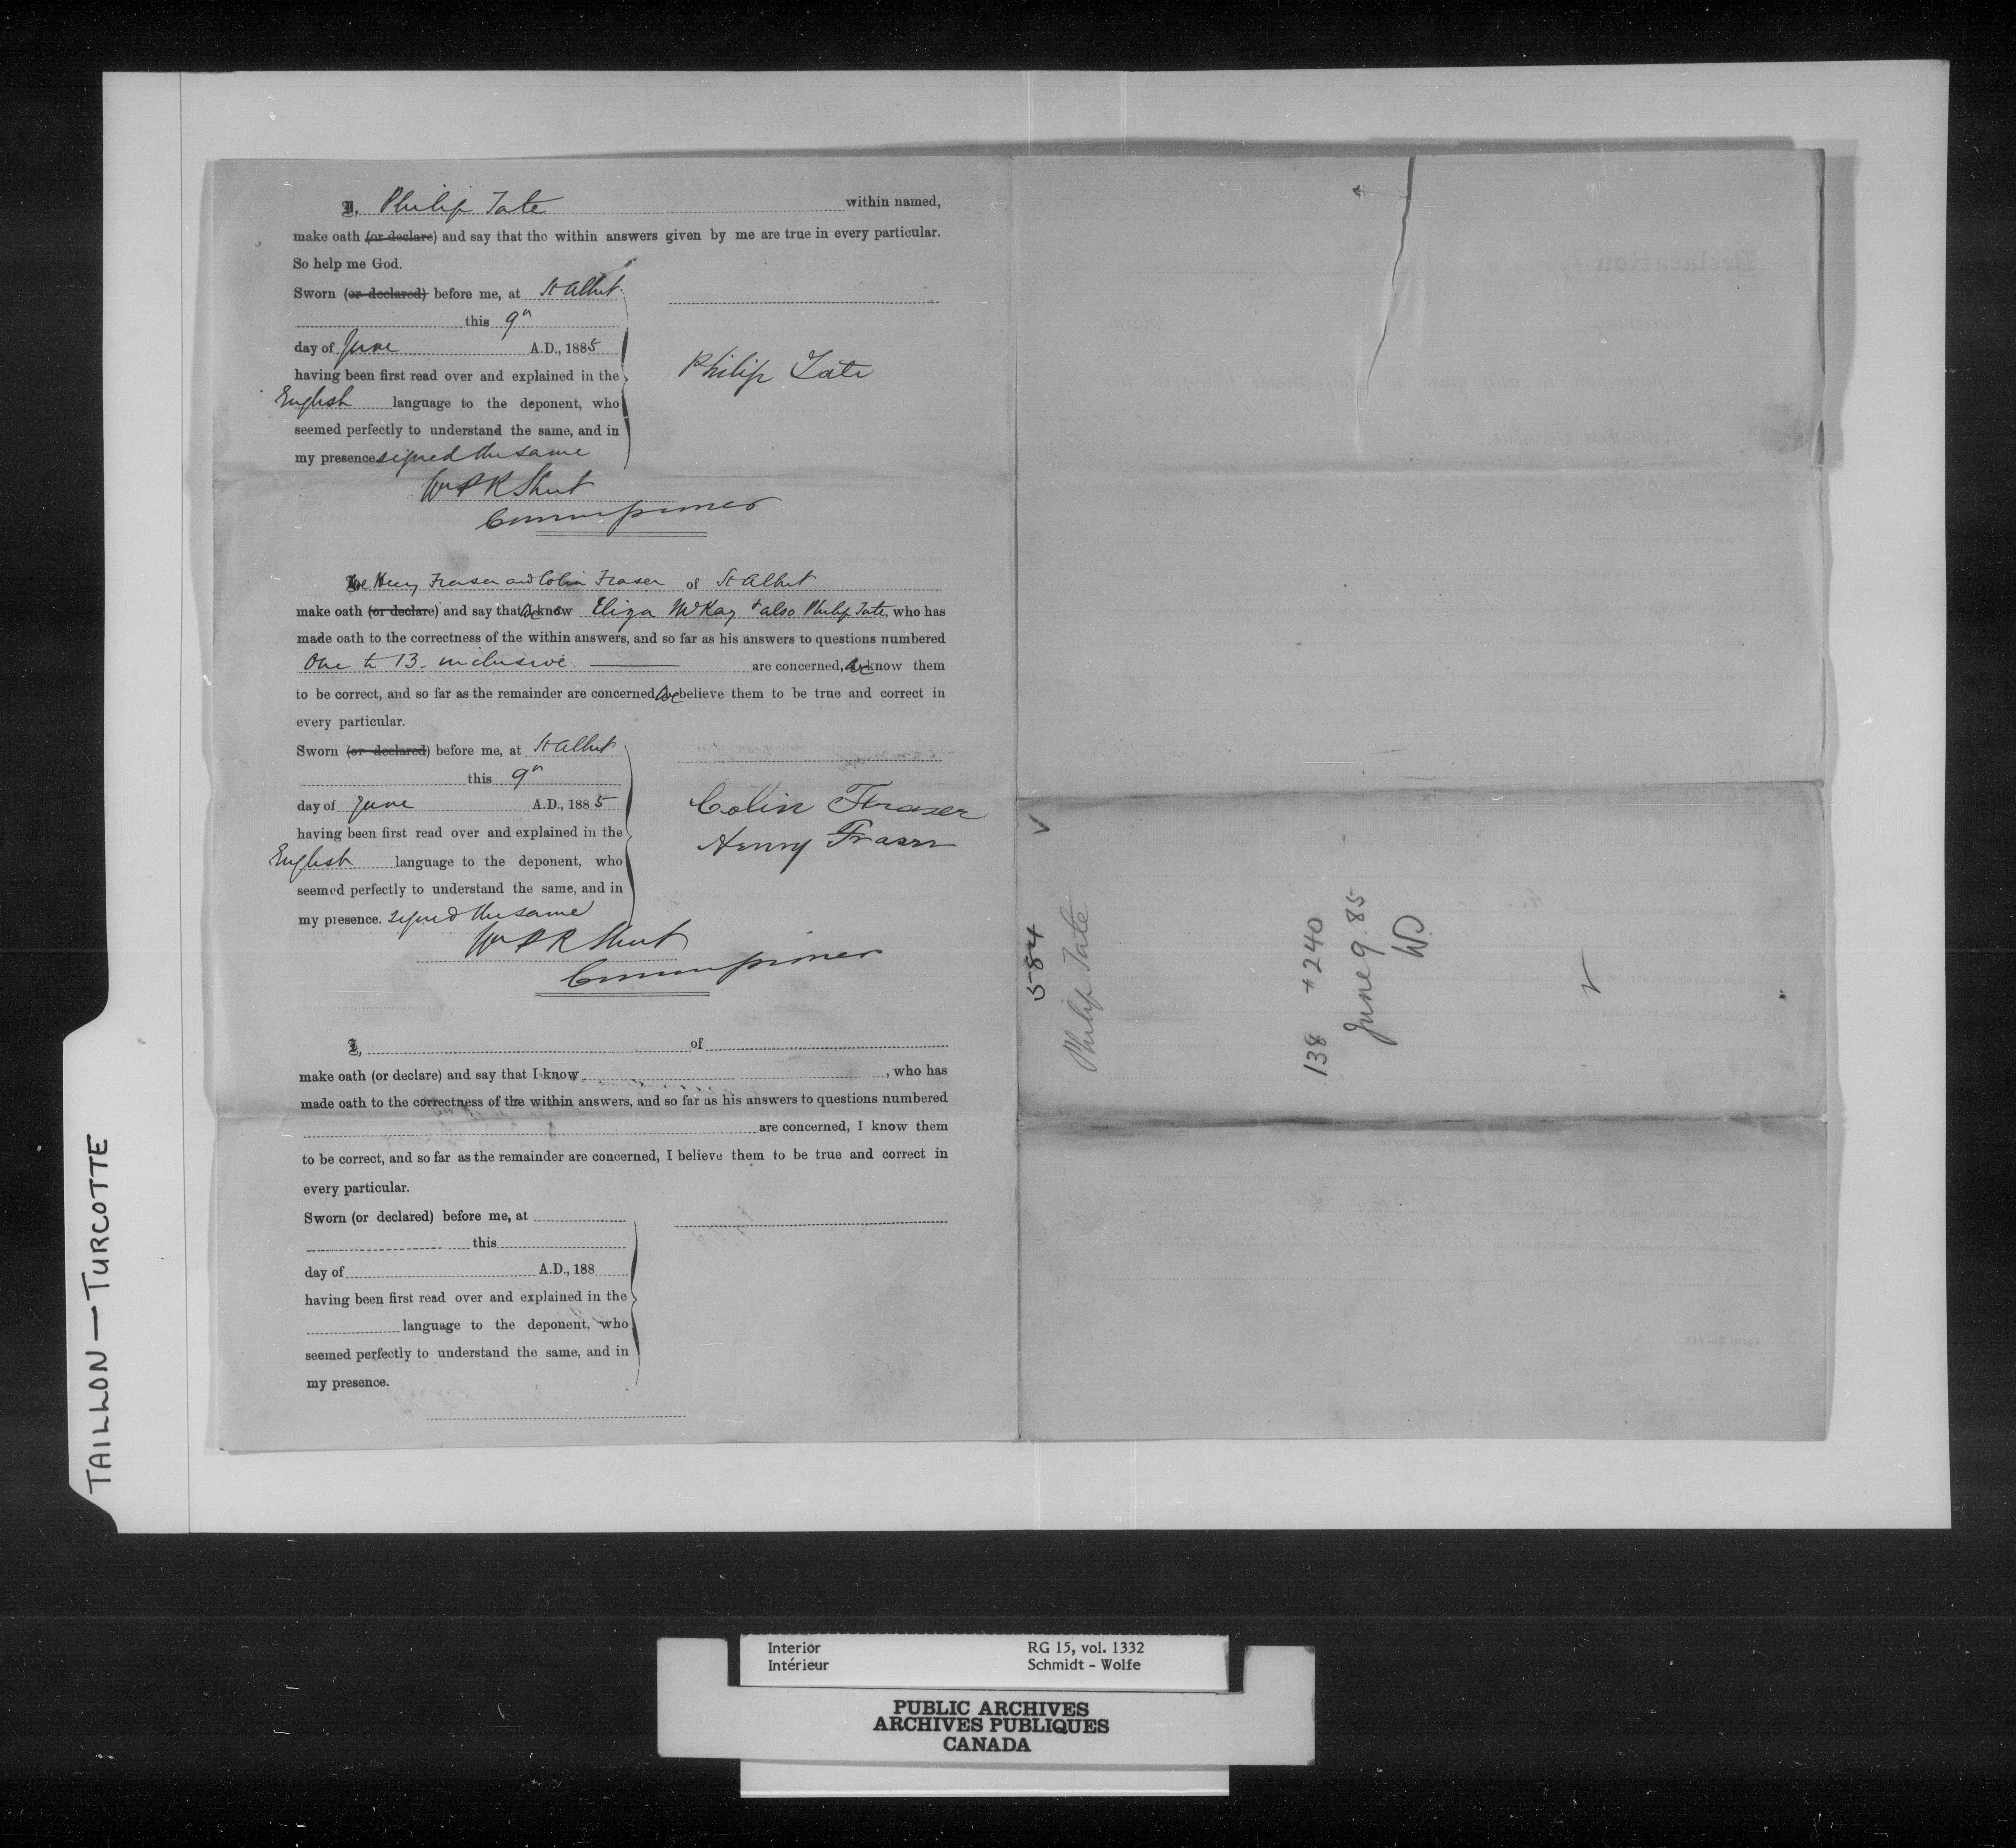 I, Philip Tate within named,
make oath (or declare) and say that the within answers given by me are true in every particular.
So help me God.
Sworn (or declared) before me, at St Albert
this 9th
day of June A.D., 1885
having been first read over and explained in the
English language to the deponent, who
seemed perfectly to understand the same, and in
my presence signed the same
Philip Tate
Wm P R Street
Commissioner
We Henry Fraser and Colin Fraser of St Albert
make oath (or declare) and say that we know Eliza McKay & also Philip Tate, who has
made oath to the correctness of the within answers, and so far as his answers to questions numbered
One to 13 inclusive are concerned, we know them
to be correct, and so far as the remainder are concerned we believe them to be true and correct in
every particular.
Sworn (or declared) before me, at St Albert
this 9th
day of June A.D., 1885
having been first read over and explained in the
English language to the deponent, who
seemed perfectly to understand the same, and in
my presence. signed the same
Colin Fraser
Henry Fraser
Wm P R Street
Commissioner
I, of
make oath (or declare) and say that I know , who has
made oath to the correctness of the within answers, and so far as his answers to questions numbered
are concerned, I know them
to be correct, and so far as the remainder are concerned, I believe them to be true and correct in
every particular.
Sworn (or declared) before me, at
this
day of A.D., 188
having been first read over and explained in the
language to the deponent, who
seemed perfectly to understand the same, and in
my presence.
584
Philip Tate
138 + 240
June 9. 85
WD
TAILLON — TURCOTTE
Interior
Intérieur
RG 15, vol. 1332
Schmidt - Wolfe
PUBLIC ARCHIVES
ARCHIVES PUBLIQUES
CANADA